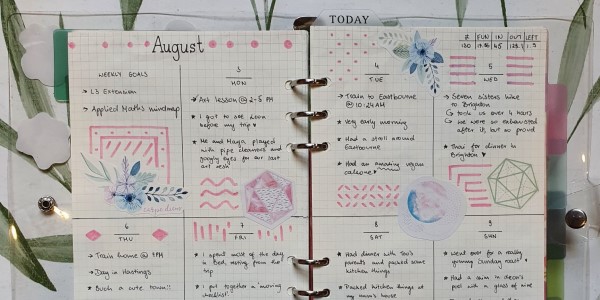 TODAY
August
WEEKLY GOALS
→ L3 Extension
→ Applied Maths mindmap
carpe diem
3
MON
Art lesson @ 2-5 PM
★ I got to see Leon
before my trip ♥
★ Me and Maya played
with pipe cleaners and
googly eyes for our last
art sesh
4
TUE
→ Train to Eastbourne
@ 10:24AM
★ Very early morning
★ Had a stroll around
Eastbourne
★ Had an amazing vegan
calzone ♥
FUN
IN
OUT
LEFT
5
WED
★ Seven sisters hike
to Brighton
↳ took us over 4 hours
↳ we were so exhausted
after it, but so proud
★ Thai for dinner in
Brighton ♥
6
THU
→ Train home @ 7PM
★ Day in Hastings
★ Such a cute town!!
7
FRI
★ I spent most of the day
in bed, resting from the
trip
★ I put together a 'moving
checklist'
8
SAT
★ Had dinner with Tao's
parents and packed some
kitchen things
★ Packed kitchen things at
my mum's house
9
SUN
★ Went over for a really
yummy Sunday roast
★ Had a swim in Dean's
pool with a glass of wine